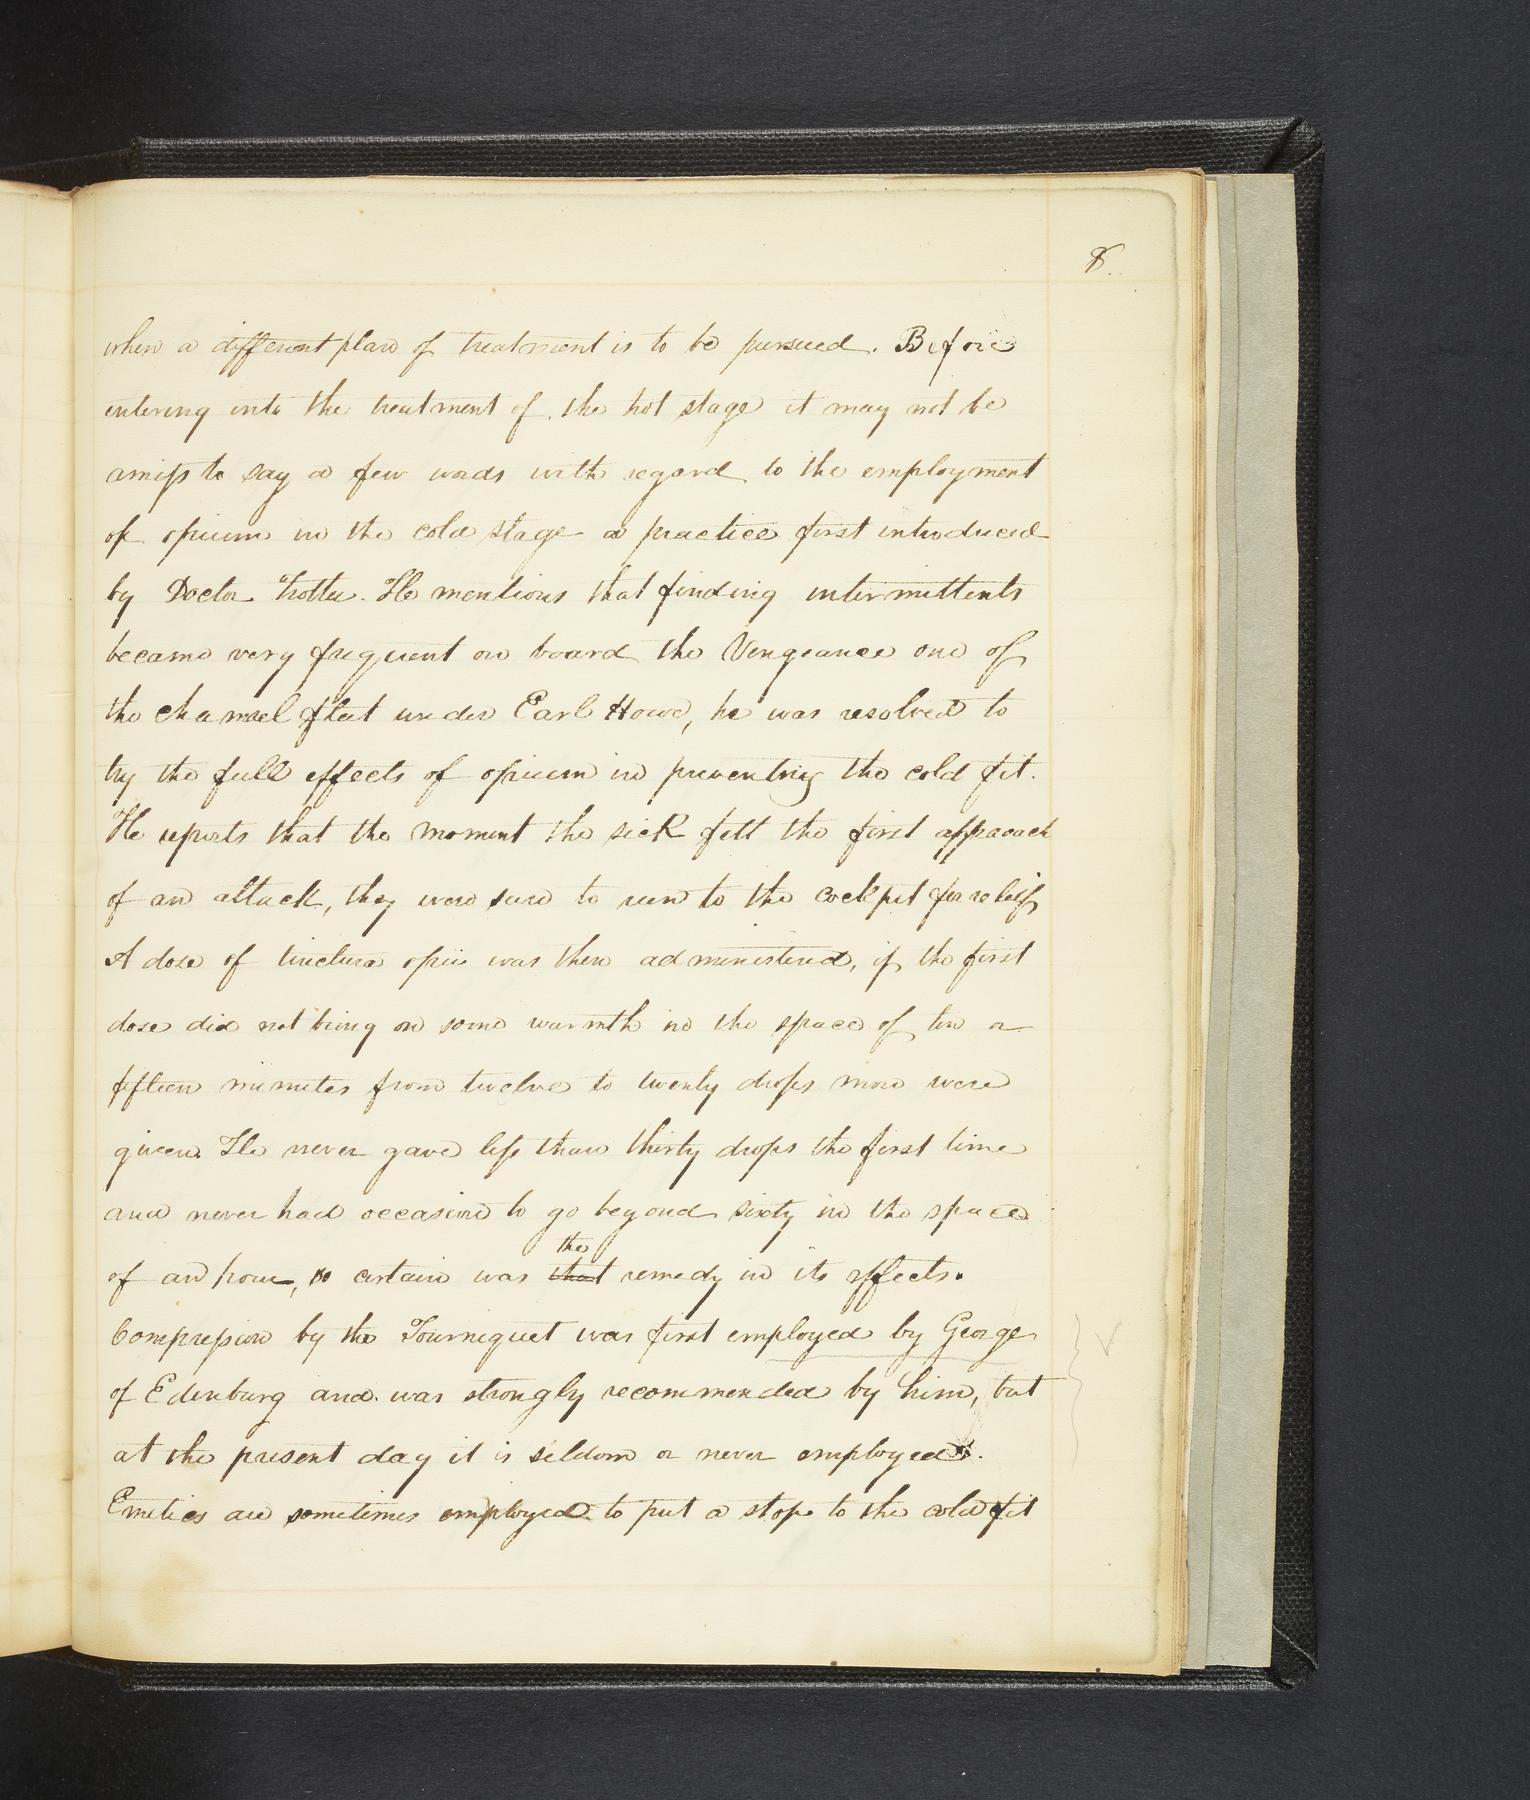 8.
when a different plan of treatment is to be pursued. Before
entering into the treatment of the hot stage it may not be
amiss to say a few words with regard to the employment
of opium in the cold stage a practice first introduced
by Doctor Trotter. He mentions that finding intermittents
became very frequent on board the Vengeance one of
the channel fleet under Earl Howe, he was resolved to
try the full effects of opium in preventing the cold fit.
He reports that the moment the sick felt the first approach
of an attack, they were sure to run to the cockpit for relief
A dose of tinctura opii was then administered, if the first
dose did not bring on some warmth in the space of ten or
fifteen minutes from twelve to twenty drops more were
given. He never gave less than thirty drops the first time
and never had occasion to go beyond sixty in the space
the
of an hour, so certain was that remedy in its effects.
Compression by the Tourniquet was first employed by George
of Edenburg and was strongly recommended by him, but
at the present day it is seldom or never employed.
Emetics are sometimes employed to put a stop to the cold fit